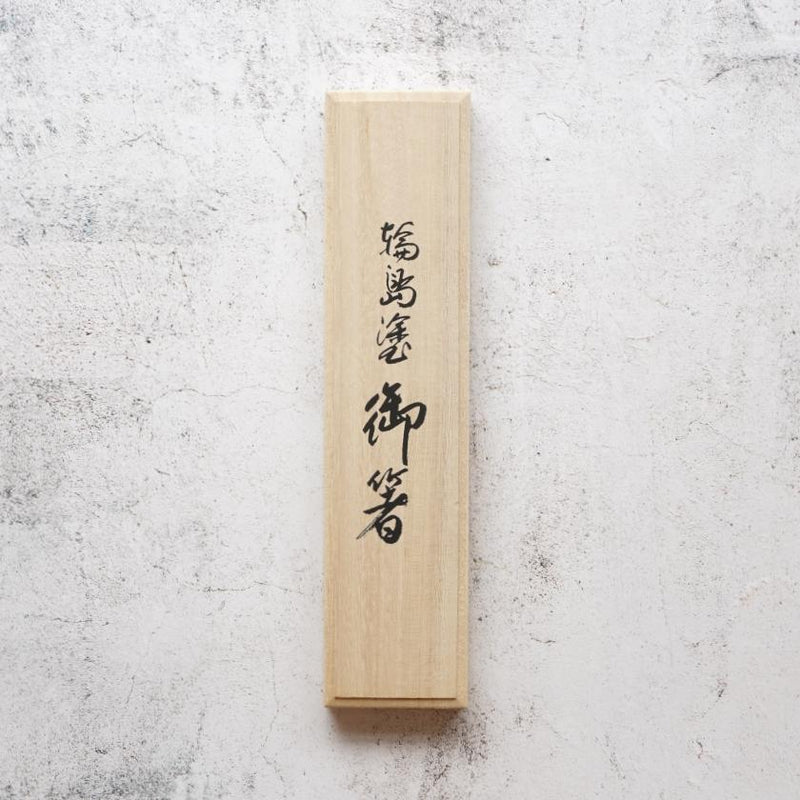 輪島塗 御箸